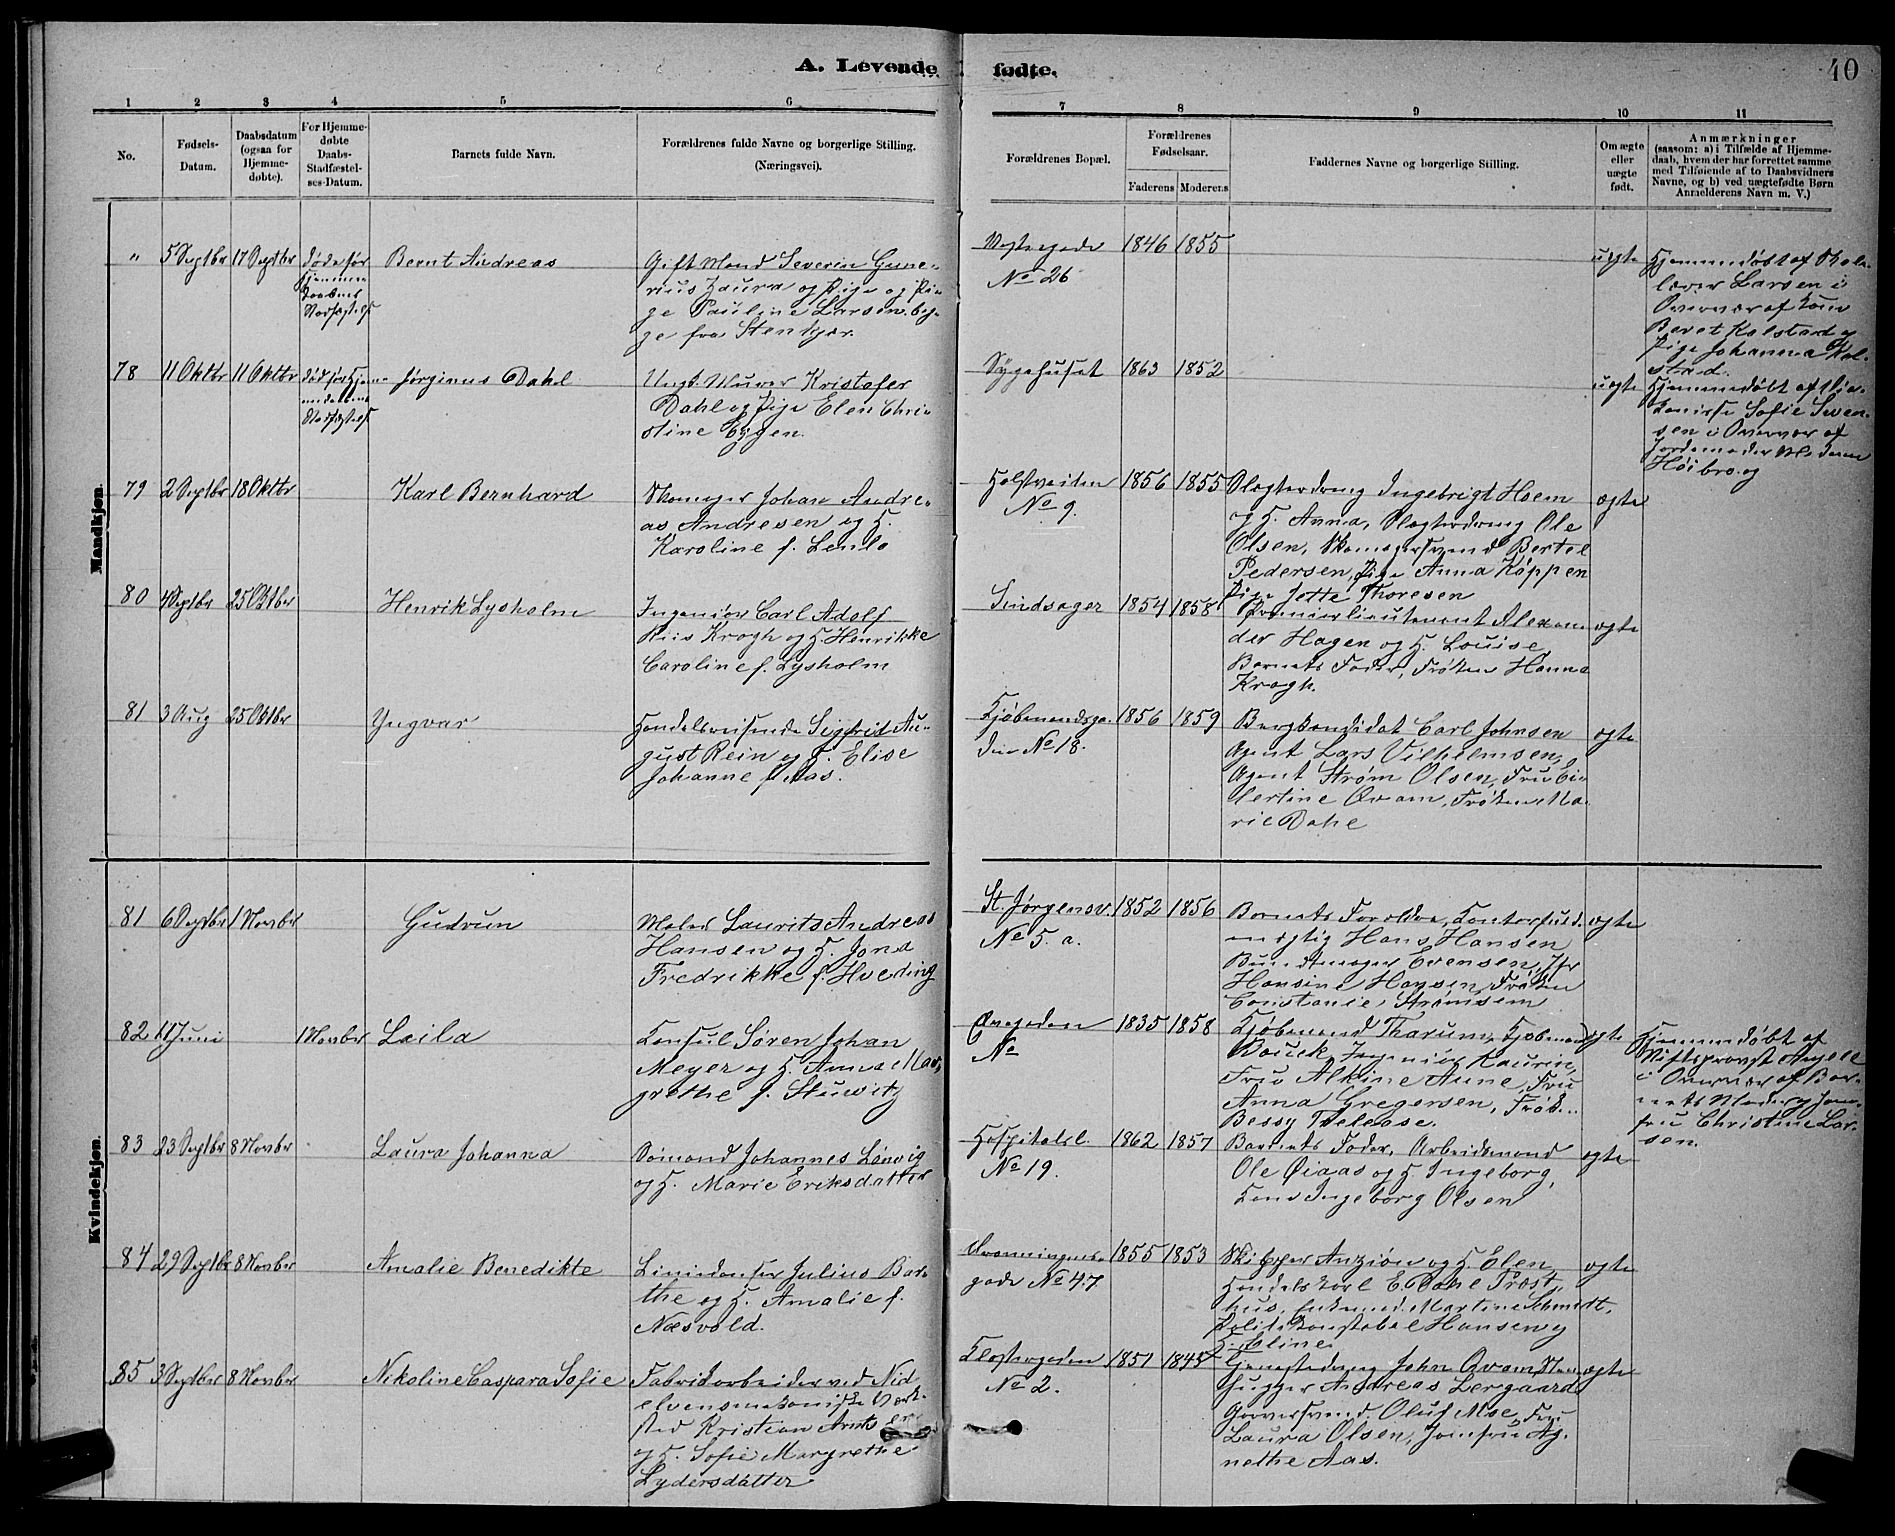 A. Levende fødte.
40
1 2 3 4 5 6 7 8 9 10 11
No.
Fødsels-
Datum.
Daabsdatum
(ogsaa for
Hjemme-
døbte).
For Hjemme-
døbte
Daabs-
Stadfæstel-
ses-Datum.
Barnets fulde Navn.
Forældrenes fulde Navne og borgerlige Stilling.
(Næringsvei).
Forældrenes Bopæl.
Forældrenes
Fødselsaar.
Faderens Moderens
Faddernes Navne og borgerlige Stilling.
Om ægte
eller
uægte
født.
Anmærkninger
(saasom: a) i Tilfælde af Hjemme-
daab, hvem der har forrettet samme
med Tilføiende af to Daabsvidners
Navne, og b) ved uægtefødte Børn
Anmelderens Navn m. V.)
Mandkjøn.
" 5 Septbr 17 Septbr død før
Hjemme
Daabens
Stadfæstelse
Bernt Andreas
Gift Mand Severin Gune-
rius Laura og Pige og Pi-
ge Pauline Larsen beg-
ge fra Stenkjær.
Vestregade
No 26
1846 1855
uegte
Hjemmedøbt af Sko-
lærer Larsen i
Overvær af Kone
Beret Kolstad og
Pige Johanna Kol-
stad.
78 11 Oktbr 11 Oktbr
Jørginus Dahl
Ungk. Murer Kristofer
Dahl og Pige Elen Chri-
stine Eggen.
Sygehuset
1863 1852
uegte
Hjemmedøbt af Dia-
konisse Sofie Sven-
sen i Overvær af
Jordemoder Madam
Høibro og
79 2 Septbr 18 Oktbr
Karl Bernhard
Skomager Johan Andre-
as Andresen og H.
Karoline f. Lenlo
Holstveiten
No 9.
1856 1855
Slagterdreng Ingebrigt Hoem
og H. Anna, Slagterdreng Ole
Olsen, Skomagersvend Bertel
Pedersen, Pige Anna Köppen
Pige Jette Thoresen
ægte
80 4 Septbr 25 Oktber
Henrik Lysholm
Ingeniør Carl Adolf
Riis Krogh og H. Henrikke
Caroline f. Lysholm
Sindsager
1854 1858
Premierlieutenant Alexan-
der Hagen og H. Louise,
Barnets Fader, Frøken Hanna
Krogh.
ægte
81 3 Aug 25 Oktbr
Yngvar
Handelsreisende Sigfrid Au-
gust Rein og H. Elise
Johanne f. Aas.
Kjøbmandsga-
den No 18.
1856 1859
Bergkandidat Carl Johnsen
Agent Lars Vilhelmsen,
Agent Strøm Olsen, Fru Gi-
lertine Qvam, Frøken Ma-
rie Dahl
ægte
Kvindekjøn.
81 6 Septbr 1 Novbr
Gudrun
Maler Laurits Andreas
Hansen og H. Jona
Fredrikke f. Hveding
St. Jørgensv.
No 5. a.
1852 1856
Barnets Forældre, Kontorfuld-
mægtig Hans Hansen
Bundtmager Evensen, Jfr
Hansine Hansen, Frøken
Constance Strømsem
ægte
82 11 Juni 1 Novber
Laila
Konsul Søren Johan
Meyer og H. Anna Mar-
grethe f. Stuwitz
No
1835 1858
Kjøbmand Tharum, Kjøbmand
Bauck, Ingeniør Kaurin,
Fru Alkine Aune, Fru
Anna Gregersen, Frøk.
Bessy Thelease.
ægte
Hjemmedøbt af
Stiftsprovst Angell
i Overvær af Bar-
nets Moder og Jom-
fru Christine Lar-
sen.
83 23 Septbr 8 Novbr
Laura Johanna
Sømand Johannes Lønvig
og H. Marie Eriksdatter
Hospitalsl.
No 19.
1862 1857
Barnets Fader, Arbeidsmand
Ole Øiaas og H. Ingeborg,
Kone Ingeborg Olsen
ægte
84 29 Septbr 8 Novbr
Amalie Benedikte
Linjedanser Julius Bar-
the og H. Amalie f.
Næsvold.
Dronningens-
gade No 47
1855 1853
Skipper Anziøn og H. Elen,
Handelskarl E. Dahl Trøst-
hus, Enkemad. Martine Schmidt,
Politikonstabel Hansen og
H. Eline
ægte
85 3 Septbr 8 Novbr
Nikoline Caspara Sofie
Fabrikarbeider ved Nid
elvens mekaniske Værk-
sted Kristian Arntsen
og H. Sofie Margrethe
Lydersdatter
Klostergaden
No 2.
1851 1848
Tjenestedreng John Qvam, Sten
hugger Andreas Lergaard
Garversvend Oluf Moe, Fru
Laura Olsen, Jomfru Ag-
nethe Aas.
ægte